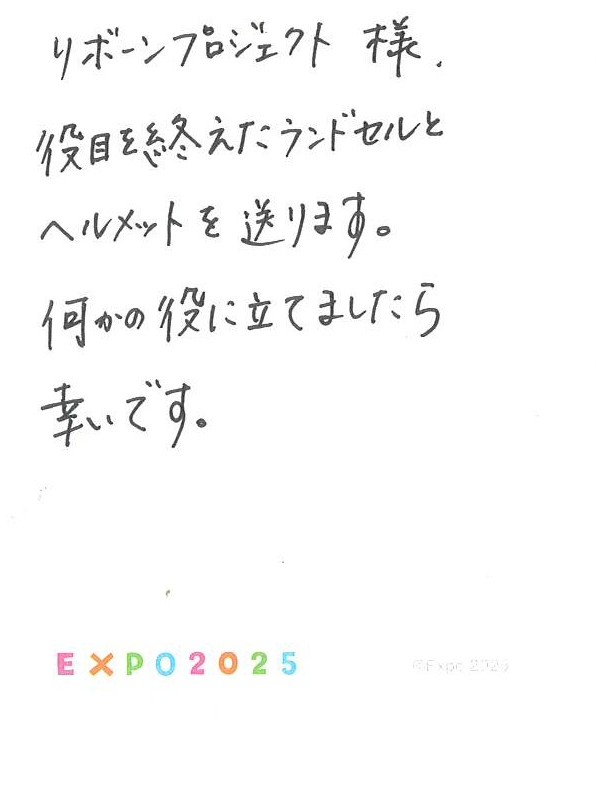 リボーンプロジェクト 様.
役目を終えたランドセルと
ヘルメットを送ります。
何かの役に立てましたら
幸いです。
EXPO2025
©Expo 2025